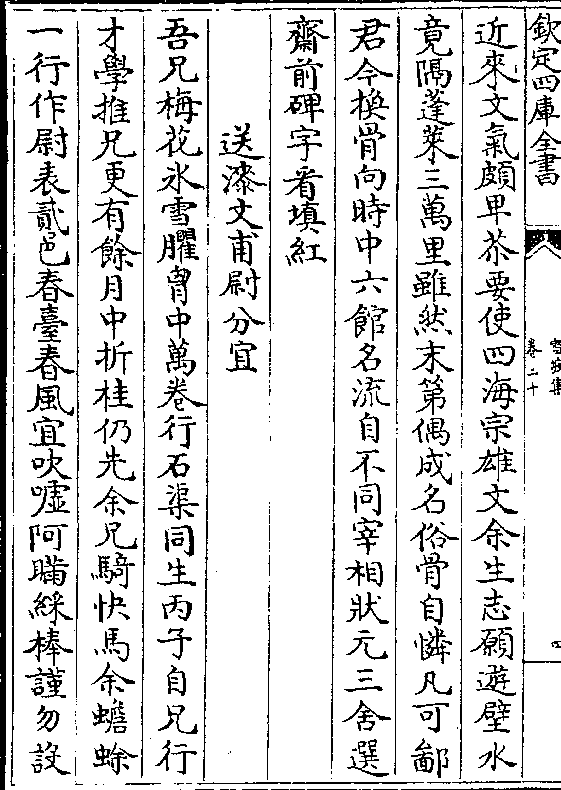 欽定四庫全書
雪坡集
卷二十
四
近來文氣頗卑芥要使四海宗雄文余生志願遊璧水
竟隔蓬萊三萬里雖然末第偶成名俗骨自憐凡可鄙
君今換骨向時中六館名流自不同宰相狀元三舍選
齋前碑字看填紅
送漆文甫尉分宜
吾兄梅花冰雪臞胷中萬卷行石渠同生丙子自兄行
才學推兄更有餘月中折桂仍先余兄騎快馬余蟾蜍
一行作尉表貳邑春臺春風宜吹噓阿瞞綵棒謹勿設